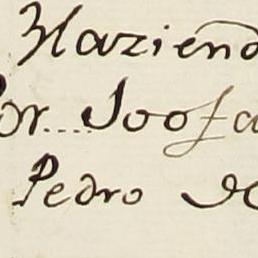 Haziend
Por.... Joof a
Pedro de